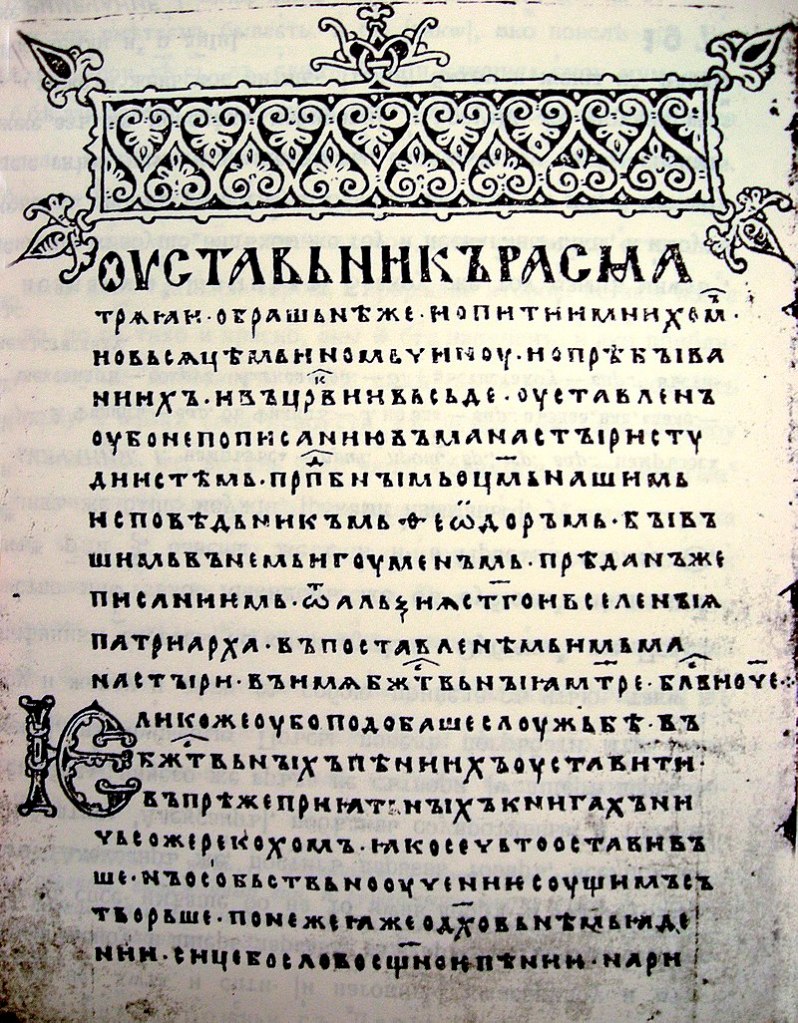 ОУСТАВЬНИКЪРАСМА
ТРѦꙖИ·ОБРАШЬНѢЖЕ·ИОПИТИИМНИХОМ҃·
ИОВЬСѦЦѢМЬИНОМЬЧИНОУ·ИОПРѢБЫВА
НИИХЪ·ИВЪЦР҃КВИИВЬСЬДЕ·ОУСТАВЛЕНЪ
ОУБОНЕПОПИСАНИЮВЪМАНАСТЫРИСТУ
ДИИСТѢМЬ·ПРП҃ДБНЫІМЬОЦ҃МЬНАШИМЬ
ИСПОВѢДЬНИКЪМЬ·ѲЕѠДОРЪМЬ·БЫІВЪ
ШИМЬВЪНЕМЬИГОУМЕНЪМЬ·ПРѢДАНЪЖЕ
ПИСАНИИМЬ·ѾАЛЬѮИѦСТ҃ГОИВСЕЛЕНЫІꙖ
ПАТРИАРХА·ВЪПОСТАВЛЕНѢМЬИМЬМА
НАСТЫРИ·ВЪИМѦБЖ҃СТВЬНЫІꙖМТ҃РЕ·БЛ҃ГВНОУЧ҃Е·
ѤЛИКОЖЕОУБОПОДОБАШЕСЛОУЖЬБѢ·ВЪ
БЖ҃СТВЬНЫХЪПѢНИИХЪОУСТАВИТИ·
ВЪПРѢЖЕПРИꙖТ НЫХЪКНИГАХЪНИ
ЧЬСОЖЕРЕКОХОМЪ·ꙖКОСЕЧЬТООСТАВИВЪ
ШЕ·НЪОСОБЬСТВЬНООУЧЕНИИСОУШИМЪСЪ
ТВОРЬШЕ·ПОНЕЖЕꙖЖЕОДХ҃ОВЬНѢМЬꙖДЕ
НИИ·СИЦЕБОСЛОВОСЩ҃НОИПѢНИИ·НАРИ